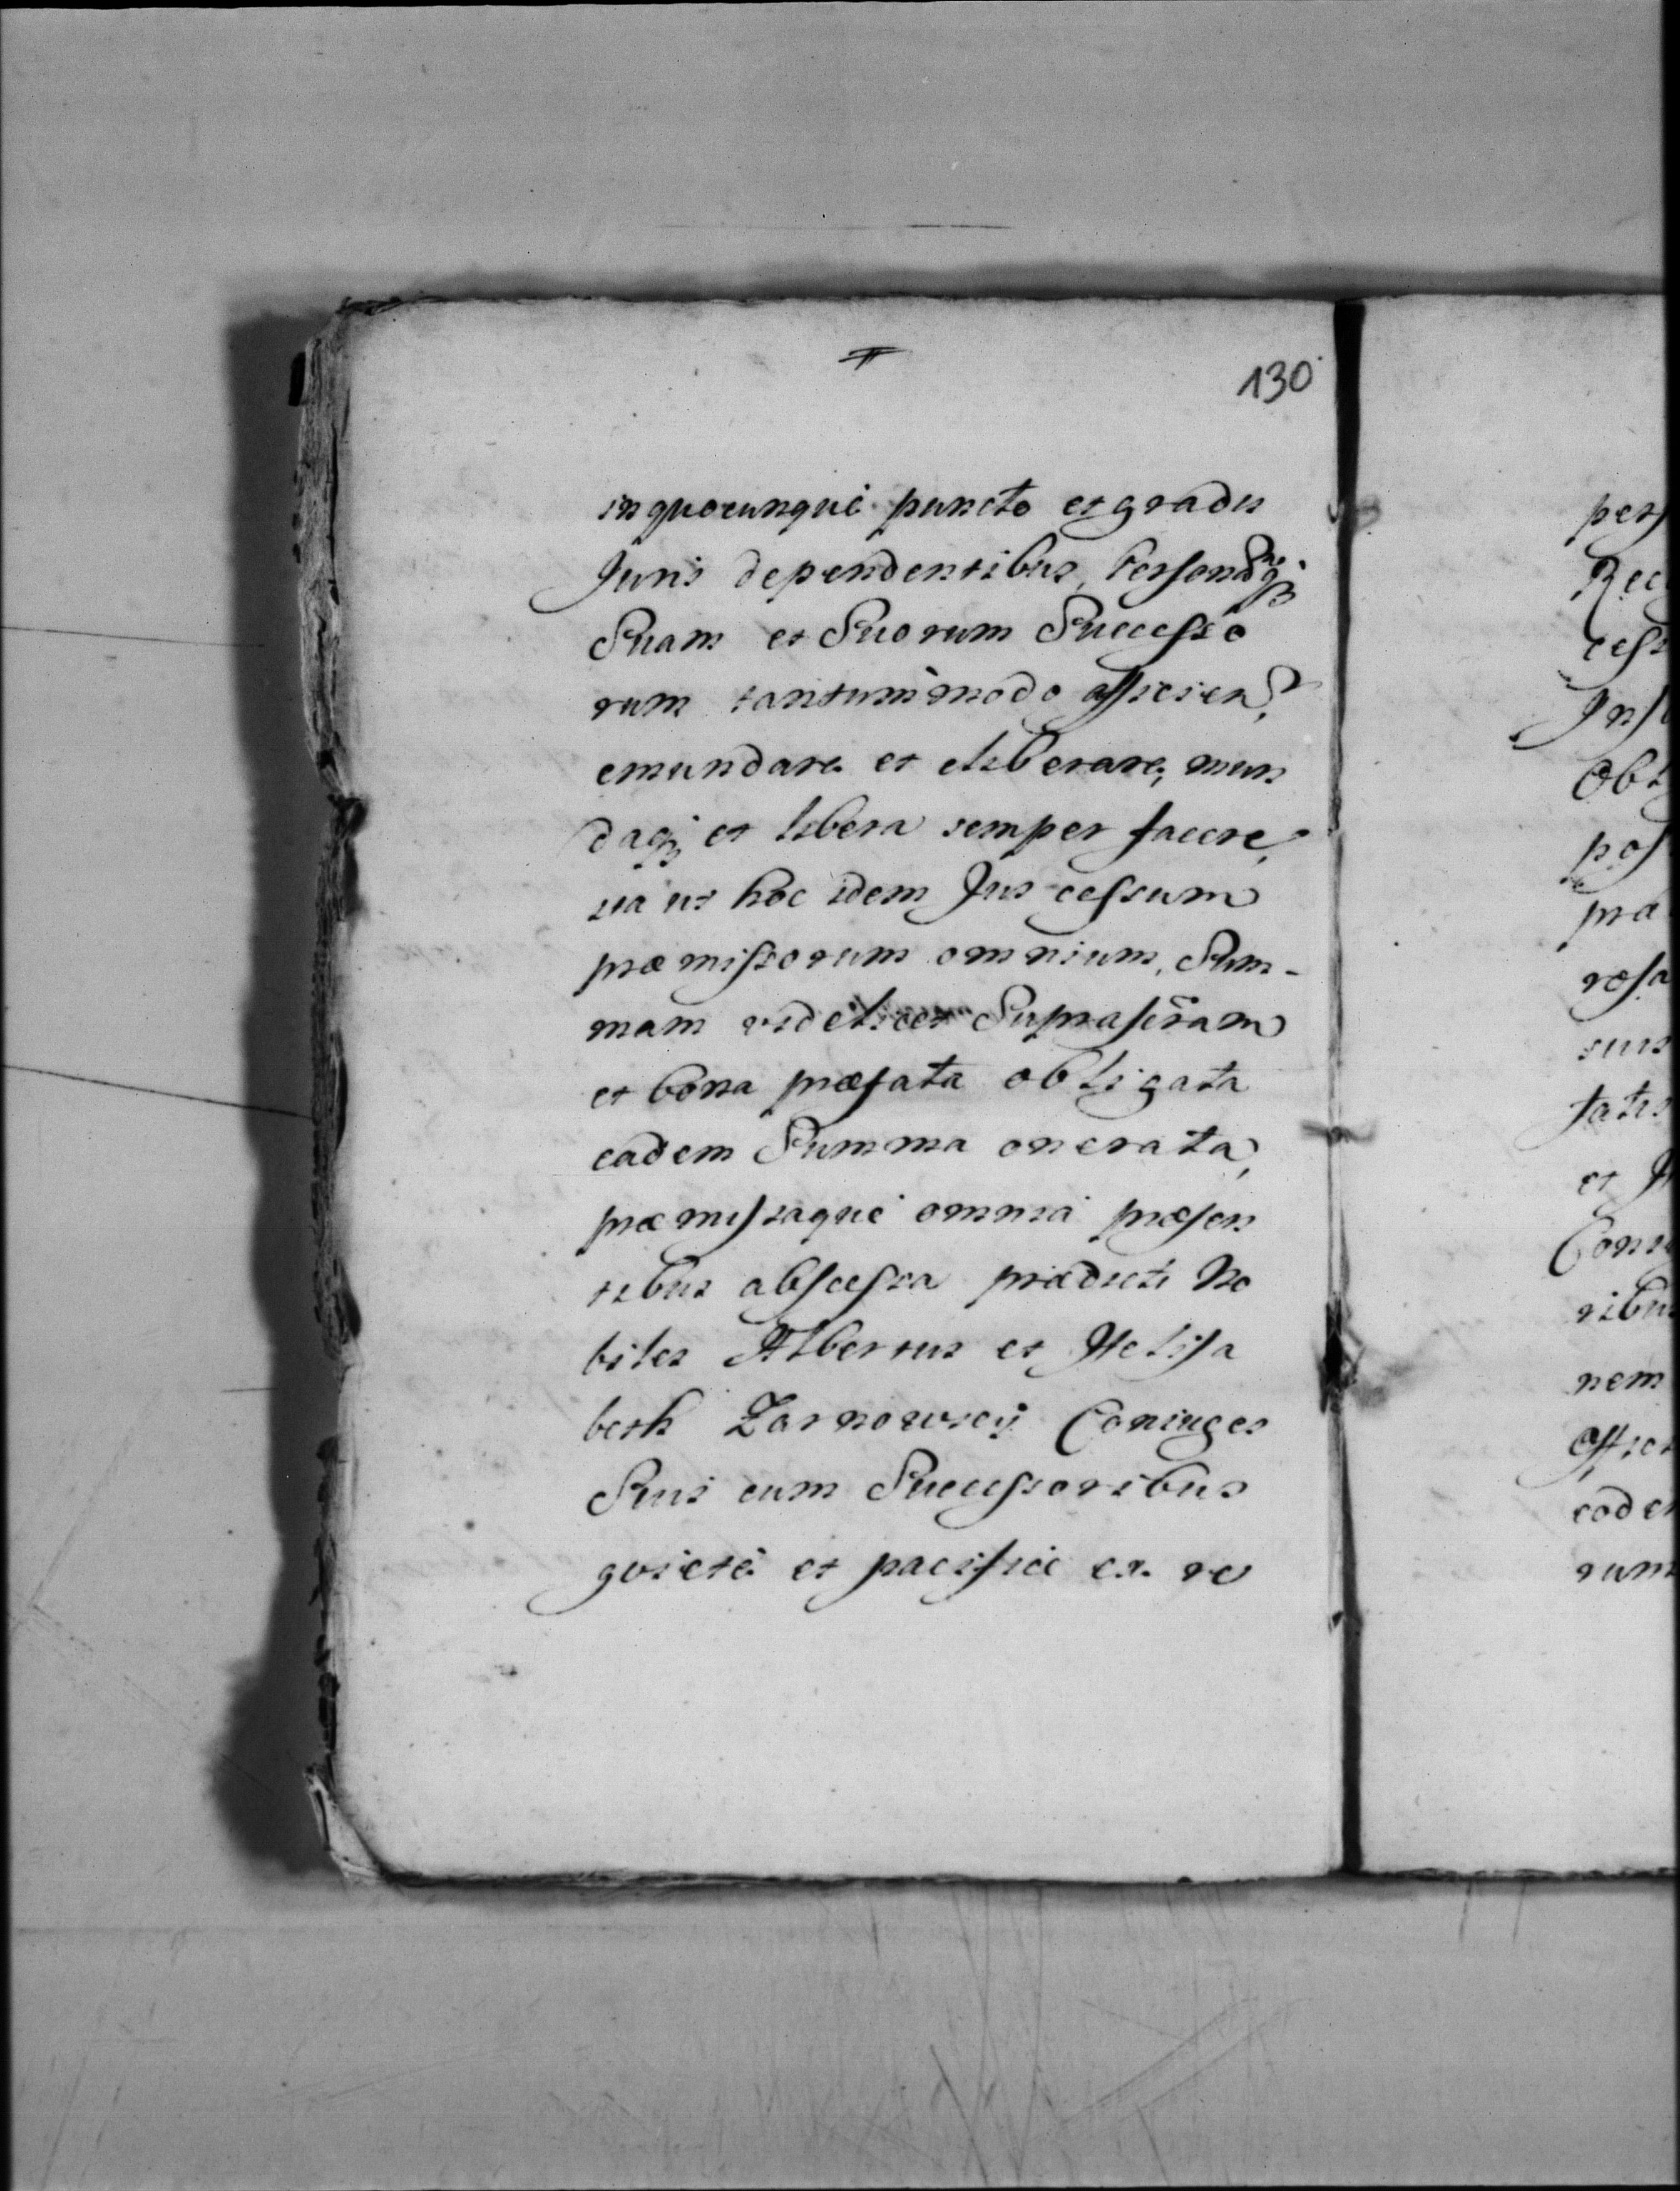 130
in quocunque puncto et gradu
Juris dependentibus, Personamq;
Suam et Suorum Successo
rum tantummodo afficien,
emundare et eliberare, mun
daq; et libera semper facere,
ita ut hoc idem Jus cessum
præmissorum omnium, Sum-
mam videlicet Suprascr̃am
et bona præfata obligata
eadem Summa onerata,
præmissaque omnia præsen
tibus abscessa prædicti No
biles Albertus et Helisa
beth Zarnowscy Coniuges
Suis cum Successoribus
quiete et pacifice ex re
pers
Rec
cess
Ins
Obl
pos
præ
resa
suis
tatis
et
Coni
ribus
nem
offici
eode
rum